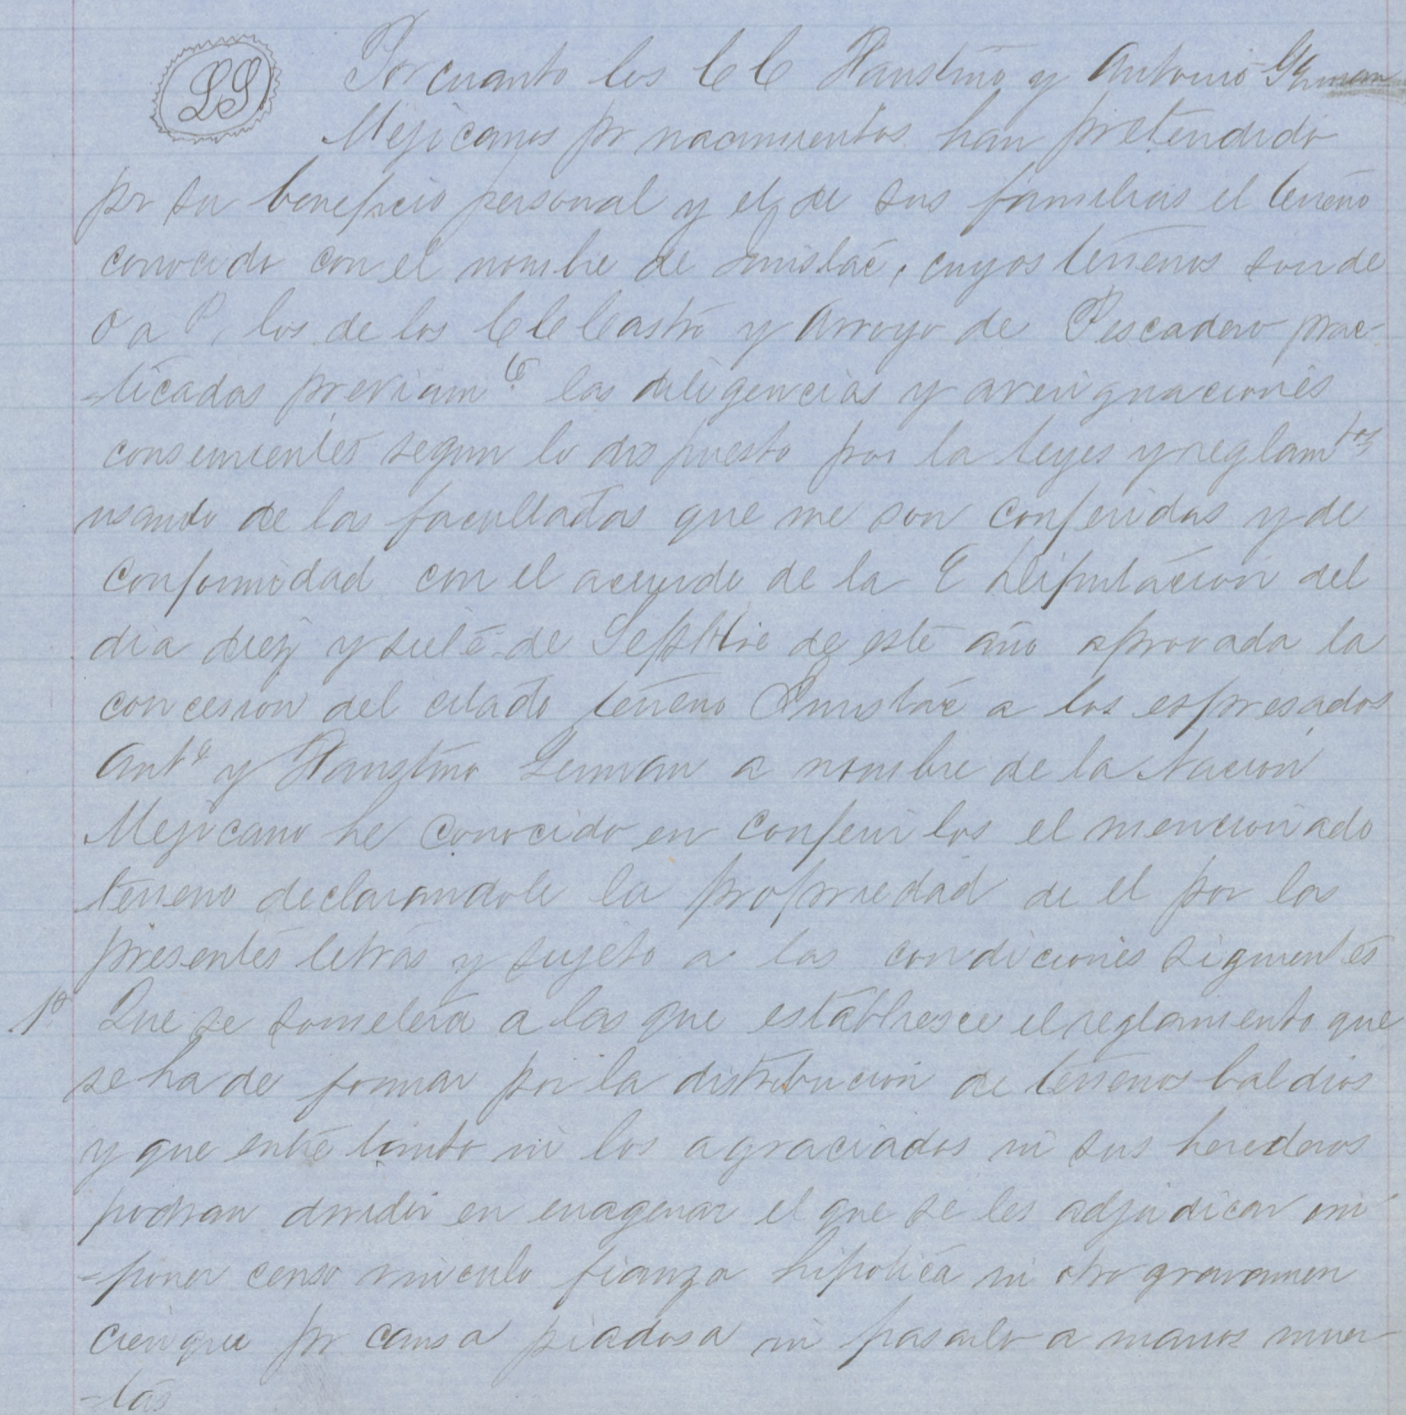 LS Por cuanto los CC Faustino y Antonio German
Mejicanos pr nacimientos han pretendido
pr su beneficio personal y el de sus familias el terreno
conocido con el nombre de Juristac, cuyos terrenos son de
O a P, los de los CC Castro y Arroyo de Pescadero prac-
-ticadas previamte las diligencias y averiguaciones
consernientes segun lo dispuesto por la leyes y reglamtos
usando de las facultadas que me son conferidas y de
conformidad con el acuerdo de la E Diputacion del
dia diez y siete de Septbre de este año aprovada la
concesion del citado terreno Juristac a los espresados
Anto y Faustino German a nombre de la Nacion
Mejicano he conocido en conferirlos el mencionado
terreno declarandole la propriedad de el por las
presentes letras y sujeto a las condiciones siguientes
1a Que se someterá a las que establesce el reglamento que
se ha de formar por la distribucion de terrenos baldios
y que entre tanto ni los agraciados ni sus herederos
podran dividir en enagenar el que se les adjudicar im
-poner censo vinculo fianza hipotica ni otro gravamen
pr causa piadosa ni pasarlo a manos muer-
-tas